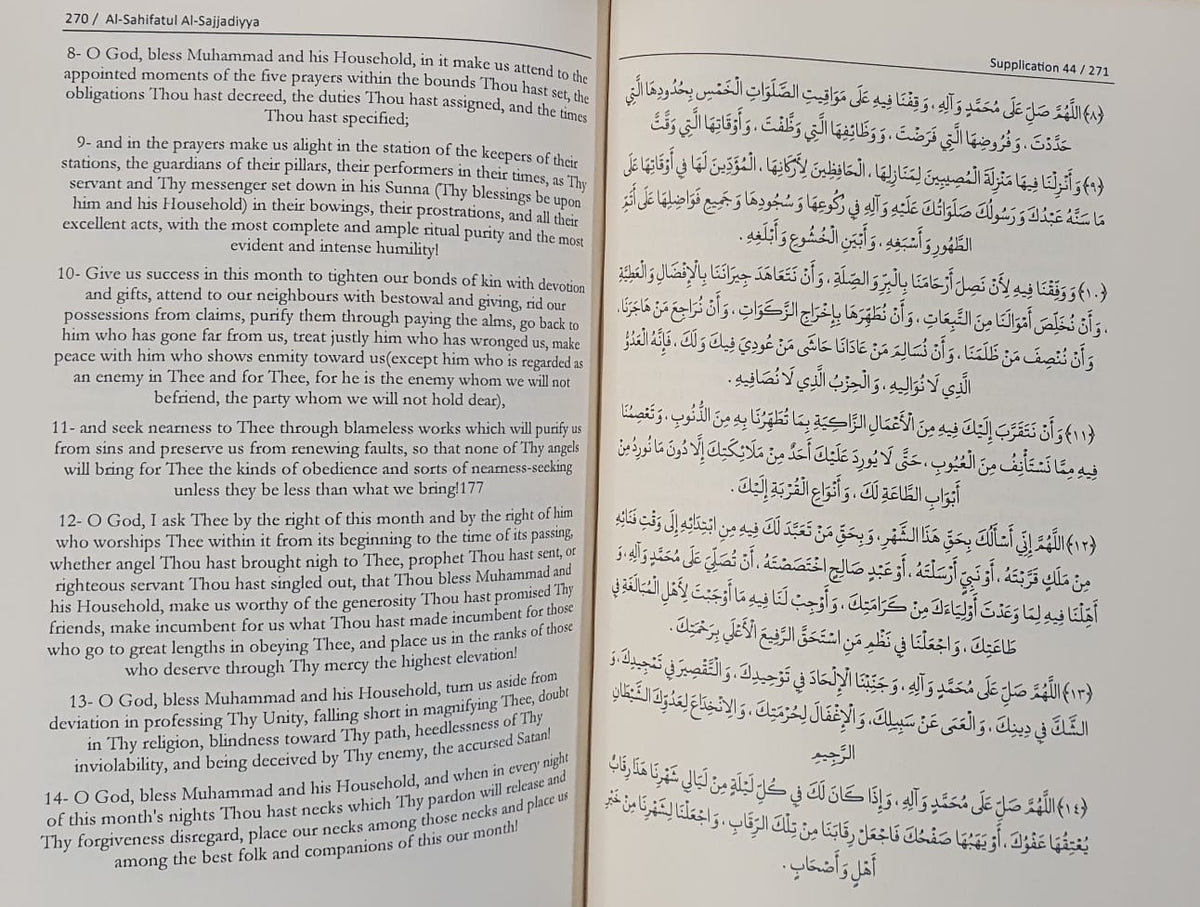 270 / Al-Sahifatul Al-Sajjadiyya
8- O God, bless Muhammad and his Household, in it make us attend to the
appointed moments of the five prayers within the bounds Thou hast set, the
obligations Thou hast decreed, the duties Thou hast assigned, and the times
Thou hast specified;
9- and in the prayers make us alight in the station of the keepers of their
stations, the guardians of their pillars, their performers in their times, as Thy
servant and Thy messenger set down in his Sunna (Thy blessings be upon
him and his Household) in their bowings, their prostrations, and all their
excellent acts, with the most complete and ample ritual purity and the most
evident and intense humility!
10- Give us success in this month to tighten our bonds of kin with devotion
and gifts, attend to our neighbours with bestowal and giving, rid our
possessions from claims, purify them through paying the alms, go back to
him who has gone far from us, treat justly him who has wronged us, make
peace with him who shows enmity toward us(except him who is regarded as
an enemy in Thee and for Thee, for he is the enemy whom we will not
befriend, the party whom we will not hold dear),
11- and seek nearness to Thee through blameless works which will purify us
from sins and preserve us from renewing faults, so that none of Thy angels
will bring for Thee the kinds of obedience and sorts of nearness-seeking
unless they be less than what we bring!177
12- O God, I ask Thee by the right of this month and by the right of him
who worships Thee within it from its beginning to the time of its passing,
whether angel Thou hast brought nigh to Thee, prophet Thou hast sent, or
righteous servant Thou hast singled out, that Thou bless Muhammad and
his Household, make us worthy of the generosity Thou hast promised Thy
friends, make incumbent for us what Thou hast made incumbent for those
who go to great lengths in obeying Thee, and place us in the ranks of those
who deserve through Thy mercy the highest elevation!
13- O God, bless Muhammad and his Household, turn us aside from
deviation in professing Thy Unity, falling short in magnifying Thee, doubt
in Thy religion, blindness toward Thy path, heedlessness of Thy
inviolability, and being deceived by Thy enemy, the accursed Satan!
14- O God, bless Muhammad and his Household, and when in every night
of this month's nights Thou hast necks which Thy pardon will release and
Thy forgiveness disregard, place our necks among those necks and place us
among the best folk and companions of this our month!
Supplication 44 / 271
﴿٨﴾ اللَّهُمَّ صَلِّ عَلَى مُحَمَّدٍ وَآلِهِ ، وَقِفْنَا فِيهِ عَلَى مَوَاقِيتِ الصَّلَوَاتِ الْخَمْسِ بِحُدُودِهَا الَّتِي
حَدَّدْتَ ، وَفُرُوضِهَا الَّتِي فَرَضْتَ ، وَوَظَائِفِهَا الَّتِي وَظَّفْتَ ، وَأَوْقَاتِهَا الَّتِي وَقَّتَّ
﴿٩﴾ وَأَنْزِلْنَا فِيهَا مَنْزِلَةَ الْمُصِيبِينَ لِمَنَازِلِهَا ، الْحَافِظِينَ لِأَرْكَانِهَا ، الْمُؤَدِّينَ لَهَا فِي أَوْقَاتِهَا عَلَى
مَا سَنَّهُ عَبْدُكَ وَرَسُولُكَ صَلَوَاتُكَ عَلَيْهِ وَآلِهِ فِي رُكُوعِهَا وَسُجُودِهَا وَجَمِيعِ فَوَاضِلِهَا عَلَى أَتَمِّ
الطَّهُورِ وَأَسْبَغِهِ ، وَأَبْيَنِ الْخُشُوعِ وَأَبْلَغِهِ .
﴿١٠﴾ وَوَفِّقْنَا فِيهِ لِأَنْ نَصِلَ أَرْحَامَنَا بِالْبِرِّ وَالصِّلَةِ ، وَأَنْ نَتَعَاهَدَ جِيرَانَنَا بِالْإِفْضَالِ وَالْعَطِيَّةِ
، وَأَنْ نُخَلِّصَ أَمْوَالَنَا مِنَ التَّبِعَاتِ ، وَأَنْ نُطَهِّرَهَا بِإِخْرَاجِ الزَّكَوَاتِ ، وَأَنْ نُرَاجِعَ مَنْ هَاجَرَنَا،
وَأَنْ نُنْصِفَ مَنْ ظَلَمَنَا ، وَأَنْ نُسَالِمَ مَنْ عَادَانَا حَاشَى مَنْ عُودِيَ فِيكَ وَلَكَ ، فَإِنَّهُ الْعَدُوُّ
الَّذِي لَا نُوَالِيهِ ، وَالْحِزْبُ الَّذِي لَا نُصَافِيهِ .
﴿١١﴾ وَأَنْ نَتَقَرَّبَ إِلَيْكَ فِيهِ مِنَ الْأَعْمَالِ الزَّاكِيَةِ بِمَا تُطَهِّرُنَا بِهِ مِنَ الذُّنُوبِ ، وَتَعْصِمُنَا
فِيهِ مِمَّا نَسْتَأْنِفُ مِنَ الْعُيُوبِ ، حَتَّى لَا يُورِدَ عَلَيْكَ أَحَدٌ مِنْ مَلَائِكَتِكَ إِلَّا دُونَ مَا نُورِدُ مِنْ
أَبْوَابِ الطَّاعَةِ لَكَ ، وَأَنْوَاعِ الْقُرْبَةِ إِلَيْكَ .
﴿١٢﴾ اللَّهُمَّ إِنِّي أَسْأَلُكَ بِحَقِّ هَذَا الشَّهْرِ ، وَبِحَقِّ مَنْ تَعَبَّدَ لَكَ فِيهِ مِنِ ابْتِدَائِهِ إِلَى وَقْتِ فَنَائِهِ
مِنْ مَلَكٍ قَرَّبْتَهُ ، أَوْ نَبِيٍّ أَرْسَلْتَهُ ، أَوْ عَبْدٍ صَالِحٍ اخْتَصَصْتَهُ ، أَنْ تُصَلِّيَ عَلَى مُحَمَّدٍ وَآلِهِ ، وَ
أَهِّلْنَا فِيهِ لِمَا وَعَدْتَ أَوْلِيَاءَكَ مِنْ كَرَامَتِكَ ، وَأَوْجِبْ لَنَا فِيهِ مَا أَوْجَبْتَ لِأَهْلِ الْمُبَالَغَةِ فِي
طَاعَتِكَ ، وَاجْعَلْنَا فِي نَظْمِ مَنِ اسْتَحَقَّ الرَّفِيعَ الْأَعْلَى بِرَحْمَتِكَ .
﴿١٣﴾ اللَّهُمَّ صَلِّ عَلَى مُحَمَّدٍ وَآلِهِ ، وَجَنِّبْنَا الْإِلْحَادَ فِي تَوْحِيدِكَ ، وَالتَّقْصِيرَ فِي تَمْجِيدِكَ ، وَ
الشَّكَّ فِي دِينِكَ ، وَالْعَمَى عَنْ سَبِيلِكَ ، وَالْإِغْفَالَ لِحُرْمَتِكَ ، وَالِانْخِدَاعَ لِعَدُوِّكَ الشَّيْطَانِ
الرَّجِيمِ
﴿١٤﴾ اللَّهُمَّ صَلِّ عَلَى مُحَمَّدٍ وَآلِهِ ، وَإِذَا كَانَ لَكَ فِي كُلِّ لَيْلَةٍ مِنْ لَيَالِي شَهْرِنَا هَذَا رِقَابٌ
يُعْتِقُهَا عَفْوُكَ ، أَوْ يَهَبُهَا صَفْحُكَ فَاجْعَلْ رِقَابَنَا مِنْ تِلْكَ الرِّقَابِ ، وَاجْعَلْنَا لِشَهْرِنَا مِنْ خَيْرِ
أَهْلٍ وَأَصْحَابٍ .